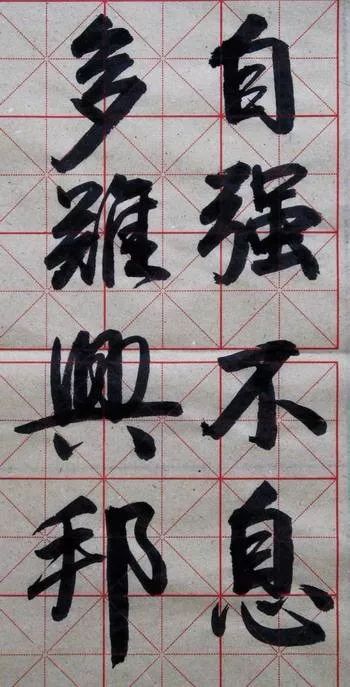 自强不息
多難興邦